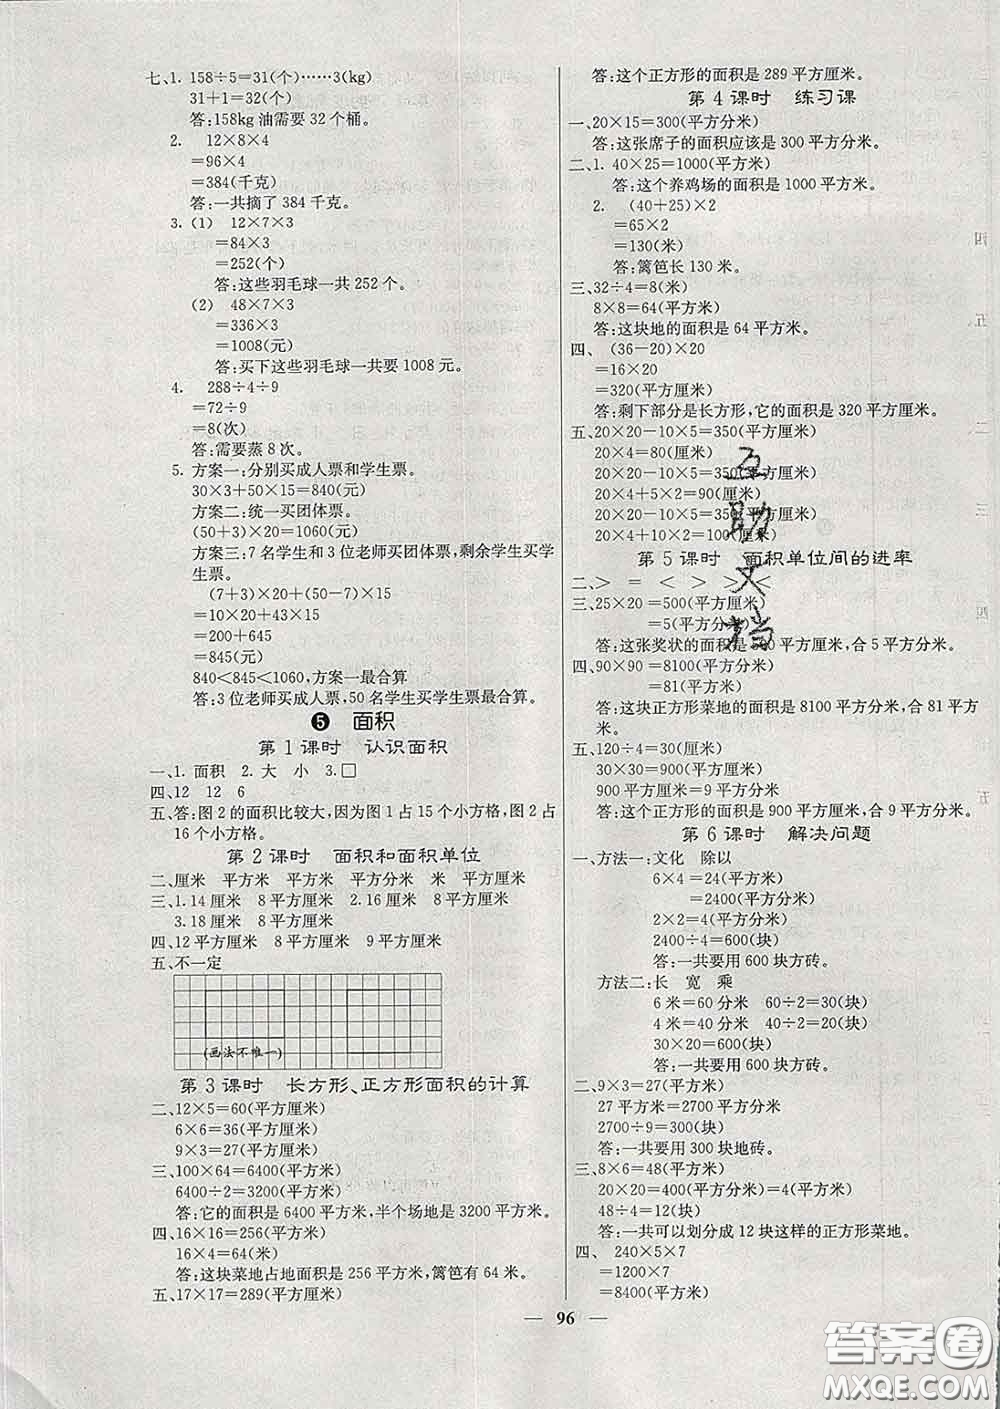 七、1. 158÷5=31(个)……3(kg)
31+1=32(个)
答:158kg 油需要 32 个桶。
2. 12×8×4
=96×4
=384(千克)
答:一共摘了 384 千克。
3. (1) 12×7×3
=84×3
=252(个)
答:这些羽毛球一共 252 个。
(2) 48×7×3
=336×3
=1008(元)
答:买下这些羽毛球一共要 1008 元。
4. 288÷4÷9
=72÷9
=8(次)
答:需要蒸 8 次。
5. 方案一:分别买成人票和学生票。
30×3+50×15=840(元)
方案二:统一买团体票。
(50+3)×20=1060(元)
方案三:7 名学生和 3 位老师买团体票,剩余学生买学
生票。
(7+3)×20+(50-7)×15
=10×20+43×15
=200+645
=845(元)
840<845<1060,方案一最合算
答:3 位老师买成人票,50 名学生买学生票最合算。
5 面积
第 1 课时 认识面积
一、1. 面积 2. 大 小 3. □
四、12 12 6
五、答:图 2 的面积比较大,因为图 1 占 15 个小方格,图 2 占
16 个小方格。
第 2 课时 面积和面积单位
二、厘米 平方米 平方米 平方分米 米 平方厘米
三、1. 14 厘米 8 平方厘米 2. 16 厘米 8 平方厘米
3. 18 厘米 8 平方厘米
四、12 平方厘米 8 平方厘米 9 平方厘米
五、不一定
(画法不唯一)
第 3 课时 长方形、正方形面积的计算
二、12×5=60(平方厘米)
6×6=36(平方厘米)
9×3=27(平方厘米)
三、100×64=6400(平方米)
6400÷2=3200(平方米)
答:它的面积是 6400 平方米,半个场地是 3200 平方米。
四、16×16=256(平方米)
16×4=64(米)
答:这块菜地占地面积是 256 平方米,篱笆有 64 米。
五、17×17=289(平方厘米)
答:这个正方形的面积是 289 平方厘米。
第 4 课时 练习课
一、20×15=300(平方分米)
答:这张席子的面积应该是 300 平方分米。
二、1. 40×25=1000(平方米)
答:这个养鸡场的面积是 1000 平方米。
2. (40+25)×2
=65×2
=130(米)
答:篱笆长 130 米。
三、32÷4=8(米)
8×8=64(平方米)
答:这块地的面积是 64 平方米。
四、 (36-20)×20
=16×20
=320(平方厘米)
答:剩下部分是长方形,它的面积是 320 平方厘米。
五、20×20-10×5=350(平方厘米)
20×4=80(厘米)
20×20-10×5=350(平方厘米)
20×4+5×2=90(厘米)
20×20-10×5=350(平方厘米)
20×4+10×2=100(厘米)
第 5 课时 面积单位间的进率
二、> = < > > <
三、25×20=500(平方厘米)
=5(平方分米)
答:这张奖状的面积是 500 平方厘米,合 5 平方分米。
四、90×90=8100(平方米)
=81(平方米)
答:这块正方形菜地的面积是 8100 平方米,合 81 平方
米。
五、120÷4=30(厘米)
30×30=900(平方厘米)
900 平方厘米=9 平方分米
答:这个正方形的面积是 900 平方厘米,合 9 平方分米。
第 6 课时 解决问题
一、方法一:文化 除以
6×4=24(平方米)
=2400(平方分米)
2×2=4(平方分米)
2400÷4=600(块)
答:一共要用 600 块方砖。
方法二:长 宽 乘
6 米=60 分米 60÷2=30(块)
4 米=40 分米 40÷2=20(块)
30×20=600(块)
答:一共要用 600 块方砖。
二、9×3=27(平方米)
27 平方米=2700 平方分米
2700÷9=300(块)
答:一共要用 300 块地砖。
三、8×6=48(平方米)
20×20=400(平方分米)=4(平方米)
48÷4=12(块)
答:一共可以划分成 12 块这样的正方形菜地。
四、 240×5×7
=1200×7
=8400(平方米)
— 96 —
互助文档
答案圈
MXQE.COM